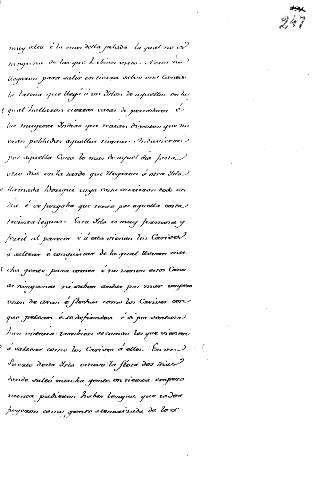 247
muy alta é la mas della pelada la qual no es
ninguna de las que habian visto. A esta no
llegaron para saltar en tierra salvo una Caravela
latina que llegó á un Islon de aquellos en la
qual hallaron ciertas casas de pescadores é
las mugeres Indias que traian dixeron que no
eran pobladas aquellas
por aquella Costa lo mas de aquel dia hasta
otro dia en la tarde que llegaron á otra Isla
llamada cuya costa corrieron todo un
dia é se juzgaba que tenia por aquella costa
treinta leguas. Esta Isla es muy fermosa y
fertil al parecer é á esta vienen los Caribes
á saltear é conquistar de la qual llevan mu-
cha gente para comer é no tienen estos Cano-
as ningunas ni saben andar por mar empero
usan de arcos é flechas como los Caribes con
que pelean é se defienden é si por ventura
han victoria tambien se comen los que vienen
á saltear como los Caribes á ellos. En un
Puerto desta Isla estuvo la flota dos dias
donde saltó mucha gente en tierra empero
nunca pudieron haber lengua que todos
huyeron como gente atemorizada de los